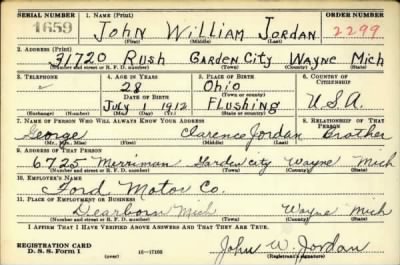 SERIAL NUMBER 1. NAME (Print) ORDER NUMBER
1659 John William Jordan 2299
(First) (Middle) (Last)
2. ADDRESS (Print)
31720 Rush Garden City Wayne Mich
(Number and street or R. F. D. number) (Town) (County) (State)
3. TELEPHONE 4. AGE IN YEARS 5. PLACE OF BIRTH 6. COUNTRY OF CITIZENSHIP
28 Ohio
DATE OF BIRTH (Town or county)
July 1 1912 Flushing U.S.A.
(Exchange) (Number) (Mo.) (Day) (Yr.) (State or country)
7. NAME OF PERSON WHO WILL ALWAYS KNOW YOUR ADDRESS 8. RELATIONSHIP OF THAT PERSON
George Clarence Jordan Brother
(Mr., Mrs., Miss) (First) (Middle) (Last)
9. ADDRESS OF THAT PERSON
6725 Merriman Garden City Wayne Mich
(Number and street or R. F. D. number) (Town) (County) (State)
10. EMPLOYER'S NAME
Ford Motor Co.
11. PLACE OF EMPLOYMENT OR BUSINESS
Dearborn Mich Wayne Mich
(Number and street or R. F. D. number) (Town) (County) (State)
I AFFIRM THAT I HAVE VERIFIED ABOVE ANSWERS AND THAT THEY ARE TRUE.
REGISTRATION CARD
D. S. S. Form 1 (over) 16—17105 John W. Jordan
(Registrant's signature)